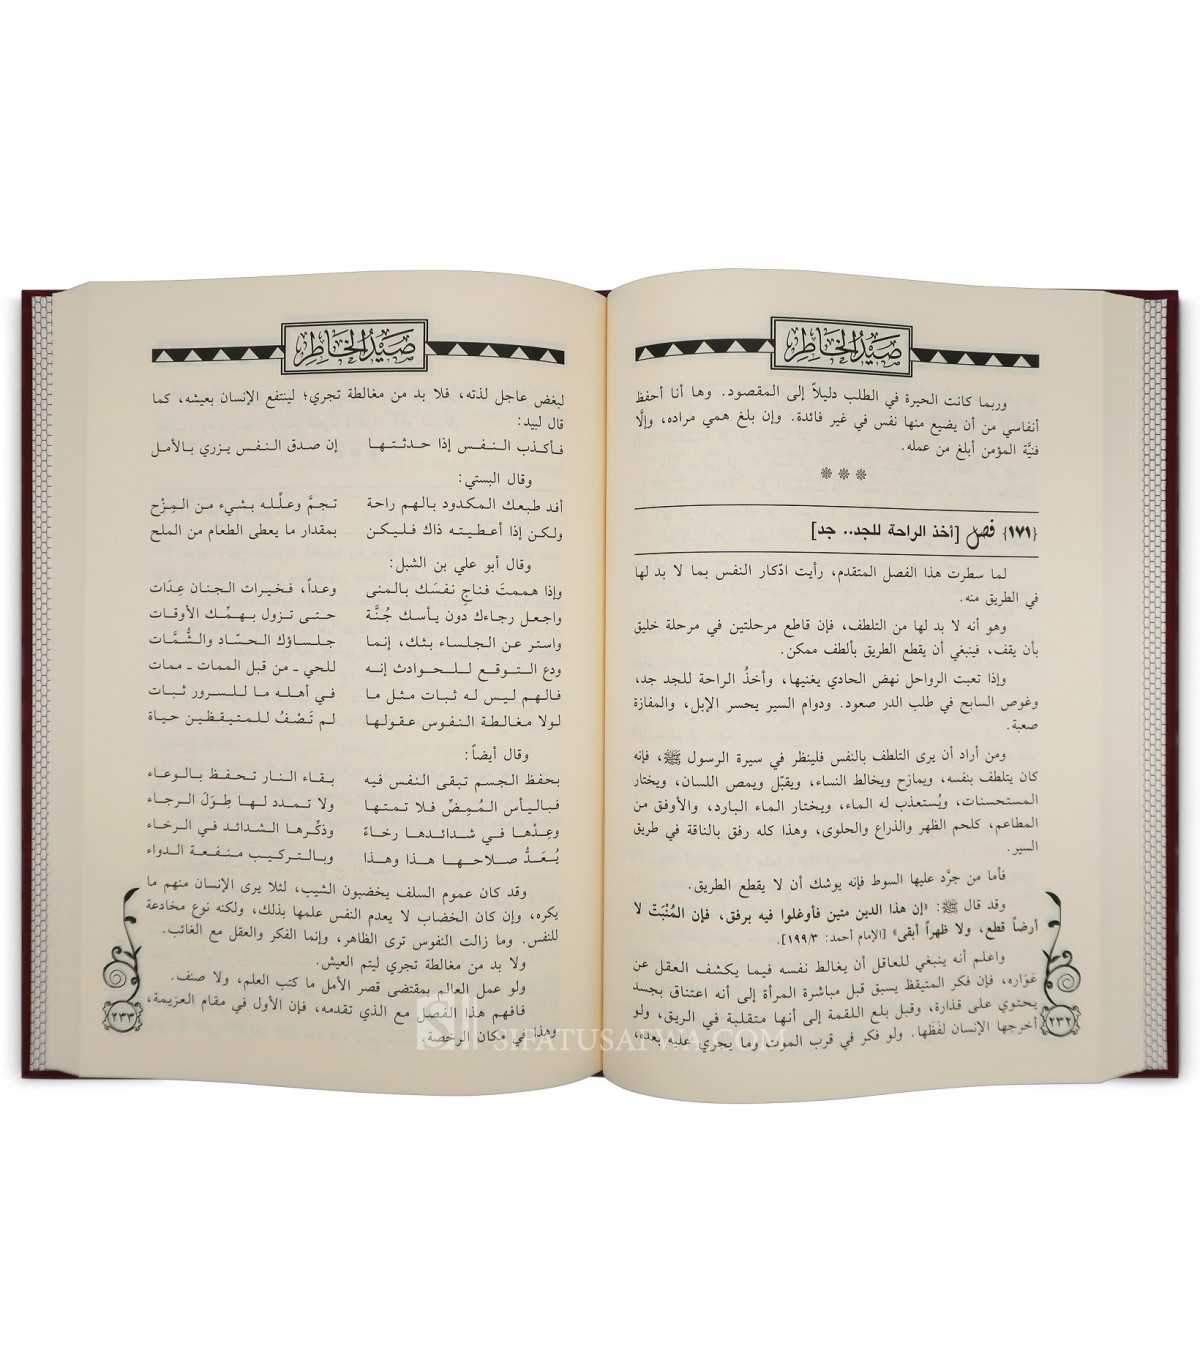 صَيْدُ الخَاطِرِ
وربما كانت الحيرة في الطلب دليلاً إلى المقصود. وها أنا أحفظ
أنفاسي من أن يضيع منها نفس في غير فائدة. وإن بلغ همي مراده، وإلَّا
فنيَّة المؤمن أبلغ من عمله.
❊ ❊ ❊
{١٧١} فصل [أخذ الراحة للجد.. جد]
لما سطرت هذا الفصل المتقدم، رأيت اذّكار النفس بما لا بد لها
في الطريق منه.
وهو أنه لا بد لها من التلطف، فإن قاطع مرحلتين في مرحلة خليق
بأن يقف، فينبغي أن يقطع الطريق بألطف ممكن.
وإذا تعبت الرواحل نهض الحادي يغنيها، وأخذُ الراحة للجد جد،
وغوص السابح في طلب الدر صعود. ودوام السير يحسر الإبل، والمفازة
صعبة.
ومن أراد أن يرى التلطف بالنفس فلينظر في سيرة الرسول ﷺ، فإنه
كان يتلطف بنفسه، ويمازح ويخالط النساء، ويقبّل ويمص اللسان، ويختار
المستحسنات، ويُستعذب له الماء، ويختار الماء البارد، والأوفق من
المطاعم، كلحم الظهر والذراع والحلوى، وهذا كله رفق بالناقة في طريق
السير.
فأما من جرَّد عليها السوط فإنه يوشك أن لا يقطع الطريق.
وقد قال ﷺ: «إن هذا الدين متين فأوغلوا فيه برفق، فإن المُنْبَتّ لا
أرضاً قطع، ولا ظهراً أبقى» [الإمام أحمد: ١٩٩/٣].
واعلم أنه ينبغي للعاقل أن يغالط نفسه فيما يكشف العقل عن
عوَاره، فإن فكر المتيقظ يسبق قبل مباشرة المرأة إلى أنه اعتناق بجسد
يحتوي على قذارة، وقبل بلع اللقمة إلى أنها متقلبة في الريق، ولو
أخرجها الإنسان لفَظَها. ولو فكر في قرب الموت وما يجري عليه بعده،
٢٣٢
صَيْدُ الخَاطِرِ
لبغض عاجل لذته، فلا بد من مغالطة تجري؛ لينتفع الإنسان بعيشه، كما
قال لبيد:
فـأكـذب النـفـس إذا حـدثـتـهـا إن صدق النـفـس يـزري بـالأمـل
وقال البستي:
أفد طبعك المكدود بالهم راحة تـجـمَّ وعـلّـلـه بـشـيء مـن الـمِـزْح
ولكـن إذا أعـطـيـتـه ذاك فـلـيـكـن بمقدار ما يعطى الطعام من الملح
وقال أبو علي بن الشبل:
وإذا هممتَ فناجِ نفسَك بالمنى وعداً، فـخـيـرات الـجـنـان عِـدَات
واجـعـل رجـاءك دون يـأسـك جُـنَّـة حـتـى تـزول بـهـمِّـك الأوقـات
واستر عن الجلساء بثك، إنما جـلـسـاؤك الـحـسّـاد والشُّـمَّـات
ودع الـتـوقـع لـلـحـوادث إنـه للحي ـ من قبل الممات ـ ممات
فـالـهـم لـيـس لـه ثـبـات مـثـل مـا فـي أهـلـه مـا لـلـسـرور ثـبـات
لـولا مـغـالـطـة الـنـفـوس عـقـولـهـا لـم تَـصْـفُ لـلـمـتـيـقـظـيـن حـيـاة
وقال أيضاً:
بحفظ الجسم تبقى النفس فيه بـقـاء الـنـار تـحـفـظ بـالـوعـاء
فـبـالـيـأس الـمُـمِـضِّ فـلا تـمـتـهـا ولا تـمـدد لـهـا طِـوَلَ الـرجـاء
وعِـدْهـا فـي شـدائـدهـا رخـاءً وذكّـرهـا الـشـدائـد فـي الـرخـاء
يُـعَـدُّ صـلاحـهـا هـذا وهـذا وبـالـتـركـيـب مـنـفـعـة الـدواء
وقد كان عموم السلف يخضبون الشيب، لئلا يرى الإنسان منهم ما
يكره، وإن كان الخضاب لا يعدم النفس علمها بذلك، ولكنه نوع مخادعة
للنفس. وما زالت النفوس ترى الظاهر، وإنما الفكر والعقل مع الغائب.
ولا بد من مغالطة تجري ليتم العيش.
ولو عمل العالم بمقتضى قصر الأمل ما كتب العلم، ولا صنف.
فافهم هذا الفصل مع الذي تقدمه، فإن الأول في مقام العزيمة،
وهذا في مكان الرخصة.
٢٣٣
SIFATUSAFWA.COM